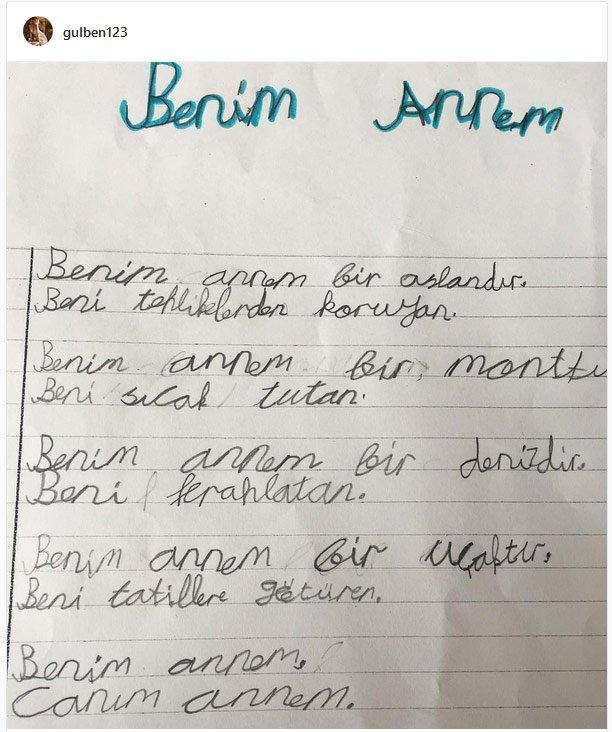 gulben123
Benim Annem
Benim annem bir aslandır.
Beni tehlikelerden koruyan.
Benim annem bir monttu
Beni sıcak tutan.
Benim annem bir denizdir.
Beni ferahlatan.
Benim annem bir uçaktır.
Beni tatillere götüren.
Benim annem.
Canım annem.